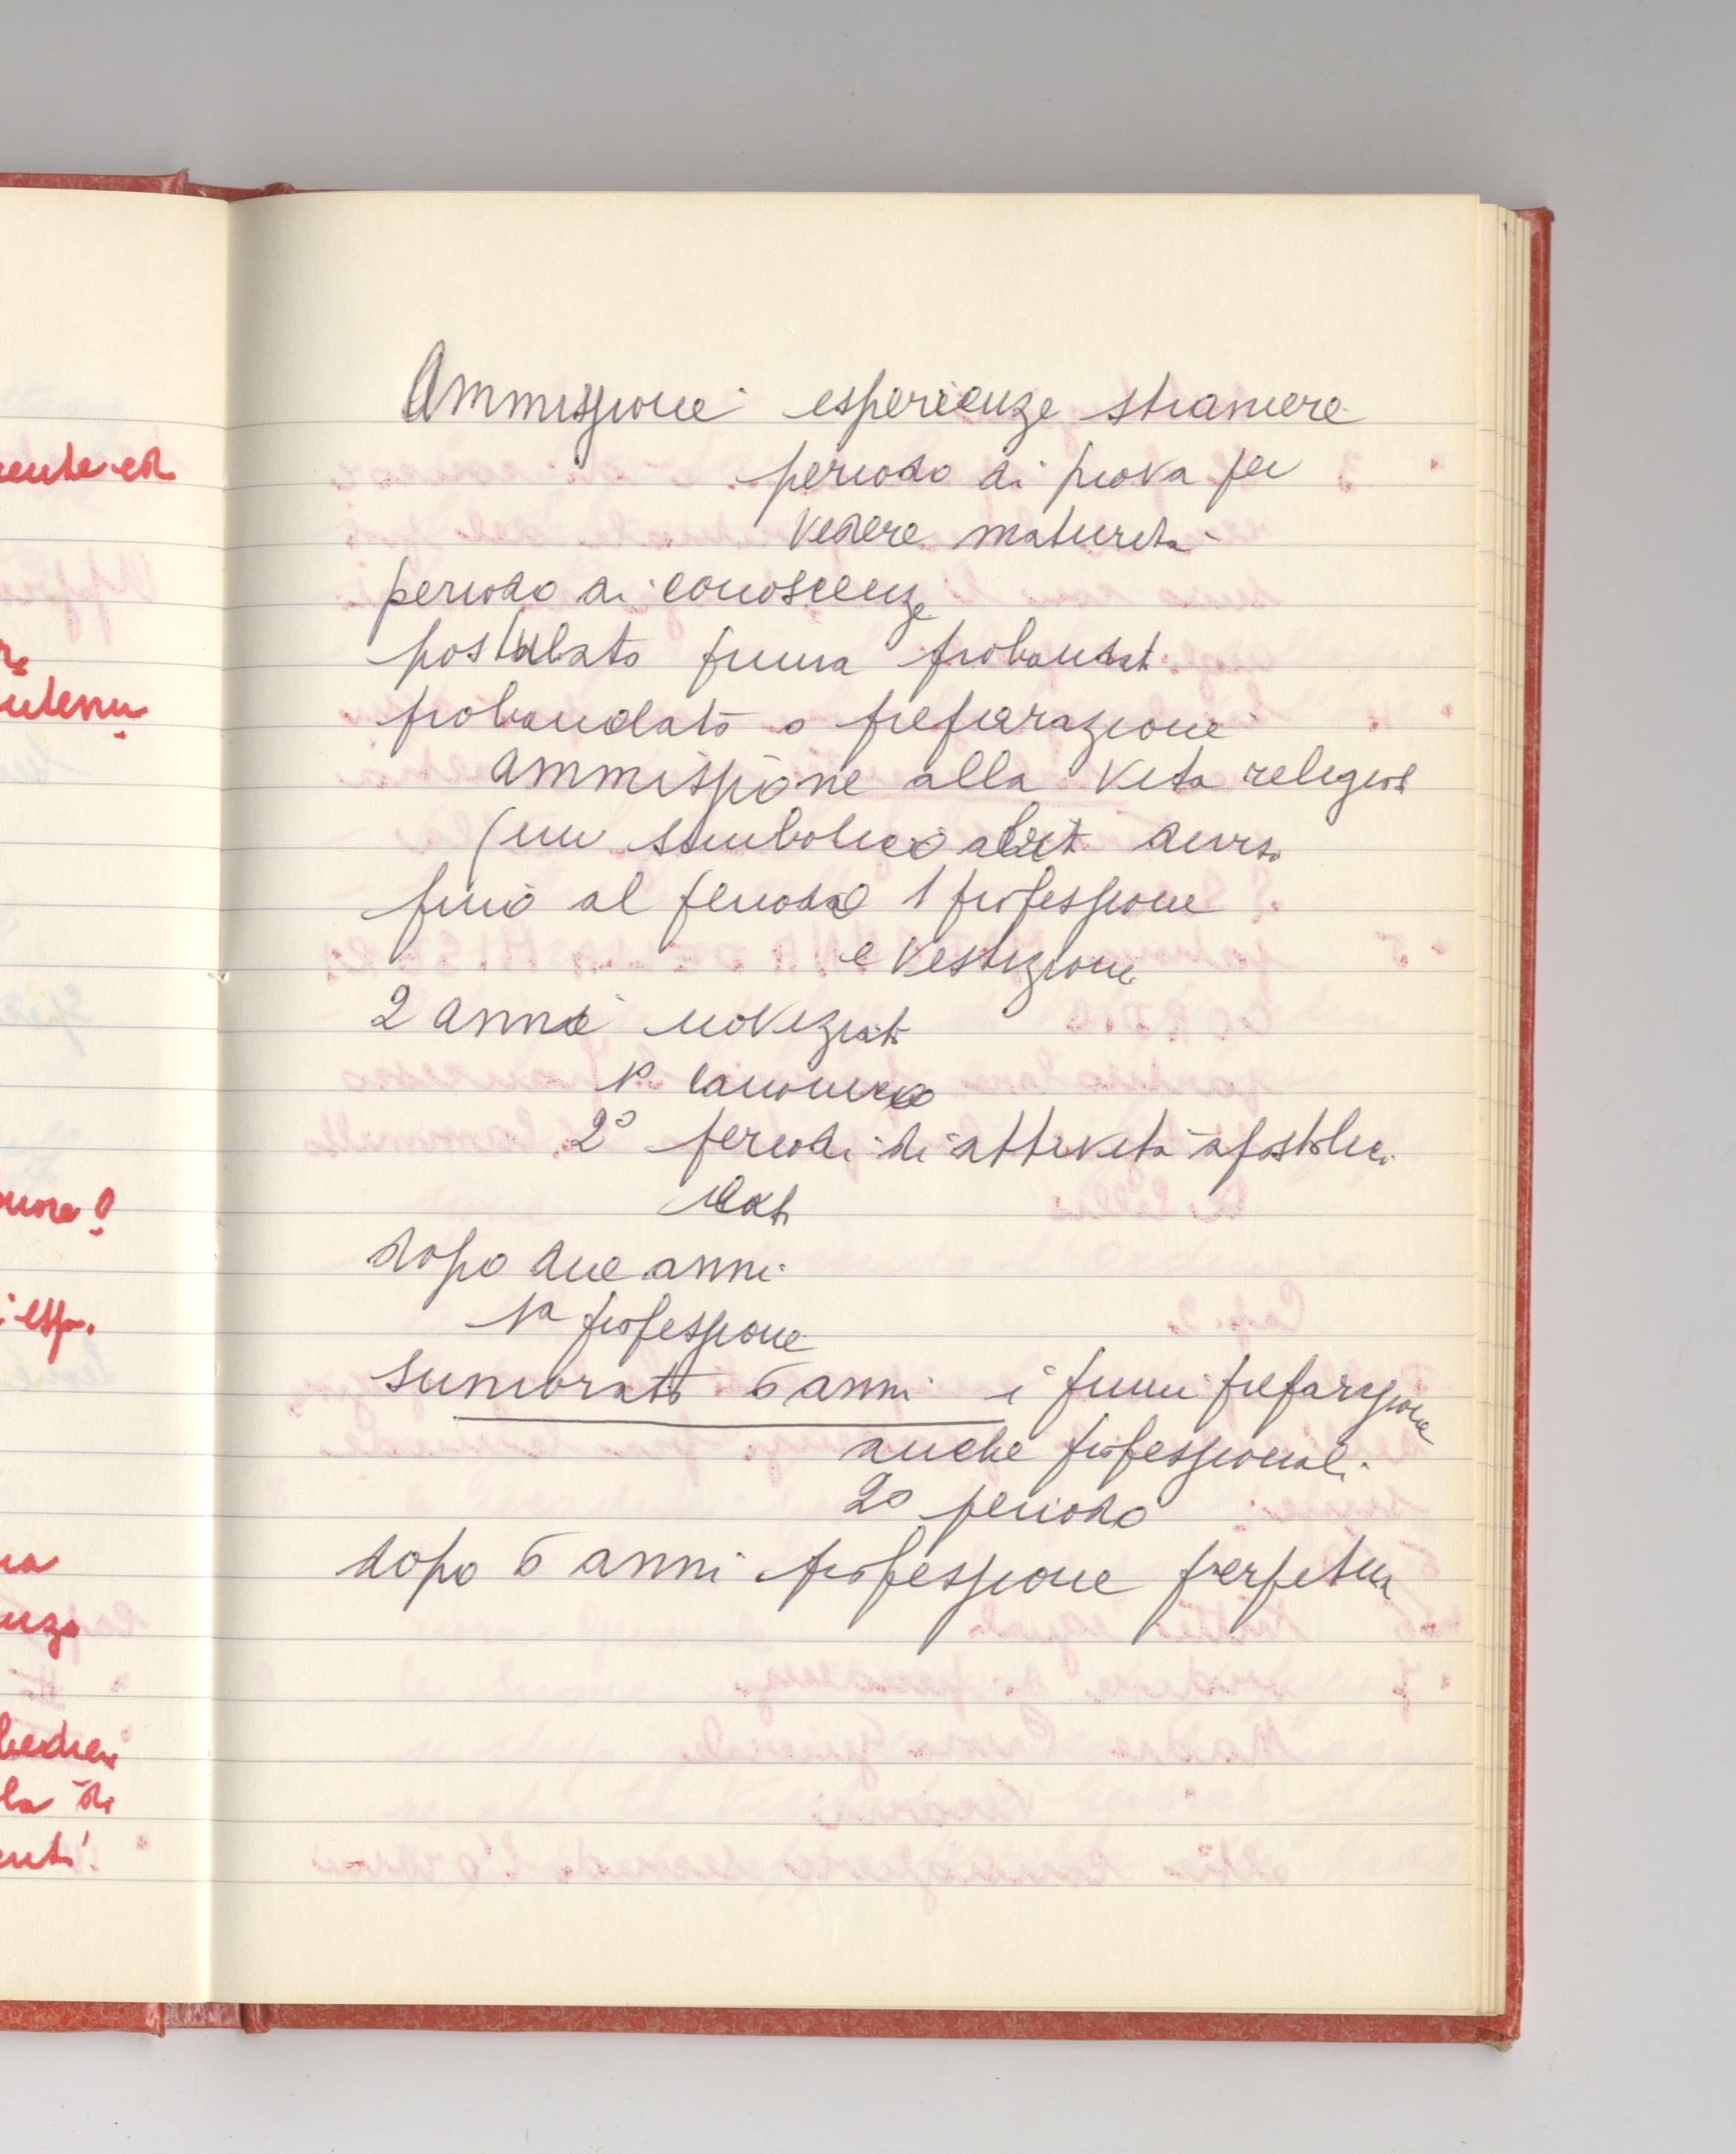 Ammissione esperienze straniere
periodo di prova per
vedere maturità
periodo di conoscenza
postulato prima probandat
probandato o preparazione
ammissione alla vita religiosa
(un simbolico abit diverso
fino al periodo 1 professione
e Vestizione
2 anni noviziato
1° canonico
2° periodi di attività apostolica
dopo due anni
1a professione
Juniorato 6 anni i primi preparazione
anche professionali
2° periodo
dopo 6 anni professione perpetua
mente ed
more!
i esp.
la di